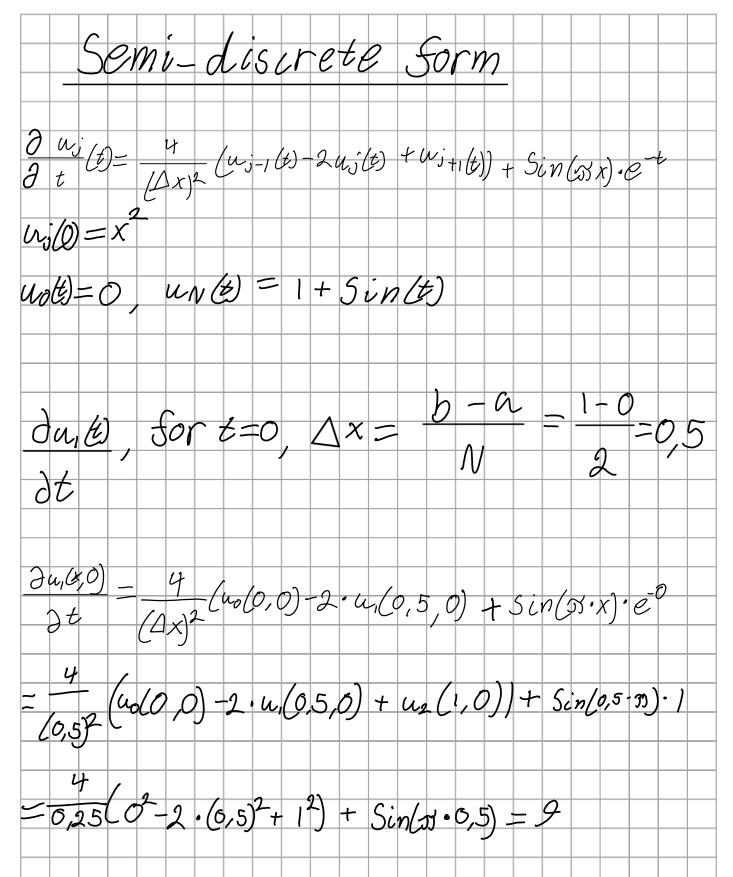 Semi-discrete form
∂/∂ u_j/t (t) = 4/(Δx)² (u_{j-1}(t) - 2u_j(t) + u_{j+1}(t)) + Sin(πx)·e^{-t}
u_j(0) = x²
u_0(t) = 0, u_N(t) = 1 + Sin(t)
∂u_1(t)/∂t, for t=0, Δx = (b - a)/N = (1 - 0)/2 = 0,5
∂u_1(x,0)/∂t = 4/(Δx)² (u_0(0,0) - 2·u_1(0,5,0) + Sin(π·x)·e^{-0}
= 4/(0,5)² (u_0(0,0) - 2·u_1(0,5,0) + u_2(1,0)) + Sin(0,5·π)·1
= 4/0,25 (0² - 2·(0,5)² + 1²) + Sin(π·0,5) = 9